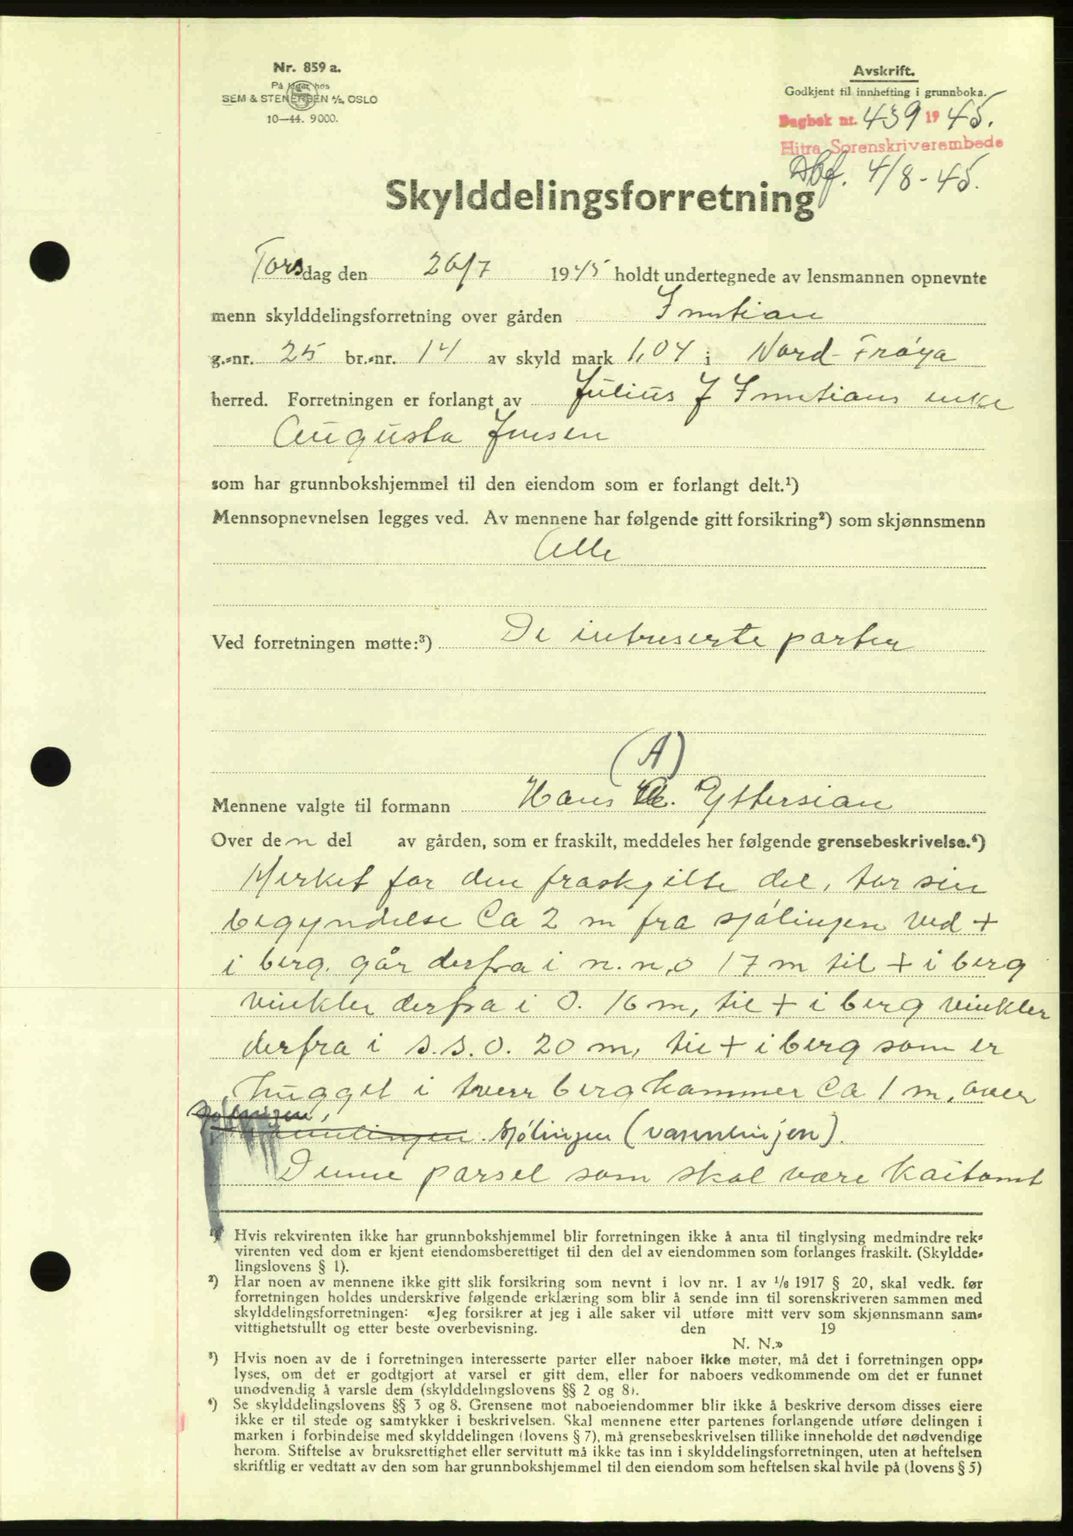 Nr. 859 a.
På lager hos
SEM & STENERSEN A/S, OSLO
10—44. 9000.
Avskrift.
Godkjent til innhefting i grunnboka.
Dagbok nr. 439 1945.
Hitra Sorenskriverembede
Abf. 4/8-45.
Skylddelingsforretning
Torsdag den 26/7 1945 holdt undertegnede av lensmannen opnevnte
menn skylddelingsforretning over gården Inntian
g.-nr. 25 br.-nr. 14 av skyld mark 1,04 i Nord-Frøya
herred. Forretningen er forlangt av Julius J Inntians enke
Augusta Jensen
som har grunnbokshjemmel til den eiendom som er forlangt delt.¹)
Mennsopnevnelsen legges ved. Av mennene har følgende gitt forsikring²) som skjønnsmenn
Alle
Ved forretningen møtte:³) De intreserte parter
(A)
Mennene valgte til formann Hans Yttersian
Over den del av gården, som er fraskilt, meddeles her følgende grensebeskrivelse.⁴)
Merket for den fraskgilte del, tar sin
begyndelse Ca 2 m fra sjølingen ved +
i berg. går derfra i n.n.o 17 m til + i berg
vinkler derfra i O. 16 m, til + i berg vinkler
derfra i s.s.o. 20 m, til + i berg som er
hugget i tverr berghammer Ca 1 m, over
sjølingen (vannlinjen).
Denne parsel som skal være kaitomt
¹) Hvis rekvirenten ikke har grunnbokshjemmel blir forretningen ikke å anta til tinglysing medmindre rek-
virenten ved dom er kjent eiendomsberettiget til den del av eiendommen som forlanges fraskilt. (Skyldde-
lingslovens § 1).
²) Har noen av mennene ikke gitt slik forsikring som nevnt i lov nr. 1 av 1/6 1917 § 20, skal vedk. før
forretningen holdes underskrive følgende erklæring som blir å sende inn til sorenskriveren sammen med
skylddelingsforretningen: «Jeg forsikrer at jeg i alle saker vil utføre mitt verv som skjønnsmann sam-
vittighetsfullt og etter beste overbevisning. den 19
N. N.»
³) Hvis noen av de i forretningen interesserte parter eller naboer ikke møter, må det i forretningen opp-
lyses, om det er godtgjort at varsel er gitt dem, eller for naboers vedkommende om det er funnet
unødvendig å varsle dem (skylddelingslovens §§ 2 og 8).
⁴) Se skylddelingslovens §§ 3 og 8. Grensene mot naboeiendommer blir ikke å beskrive dersom disses eiere
ikke er til stede og samtykker i beskrivelsen. Skal mennene etter partenes forlangende utføre delingen i
marken i forbindelse med skylddelingen (lovens § 7), må grensebeskrivelsen tillike inneholde det nødvendige
herom. Stiftelse av bruksrettighet eller servitutt må ikke tas inn i skylddelingsforretningen, uten at heftelsen
skriftlig er vedtatt av den som har grunnbokshjemmel til den eiendom som heftelsen skal hvile på (lovens § 5)